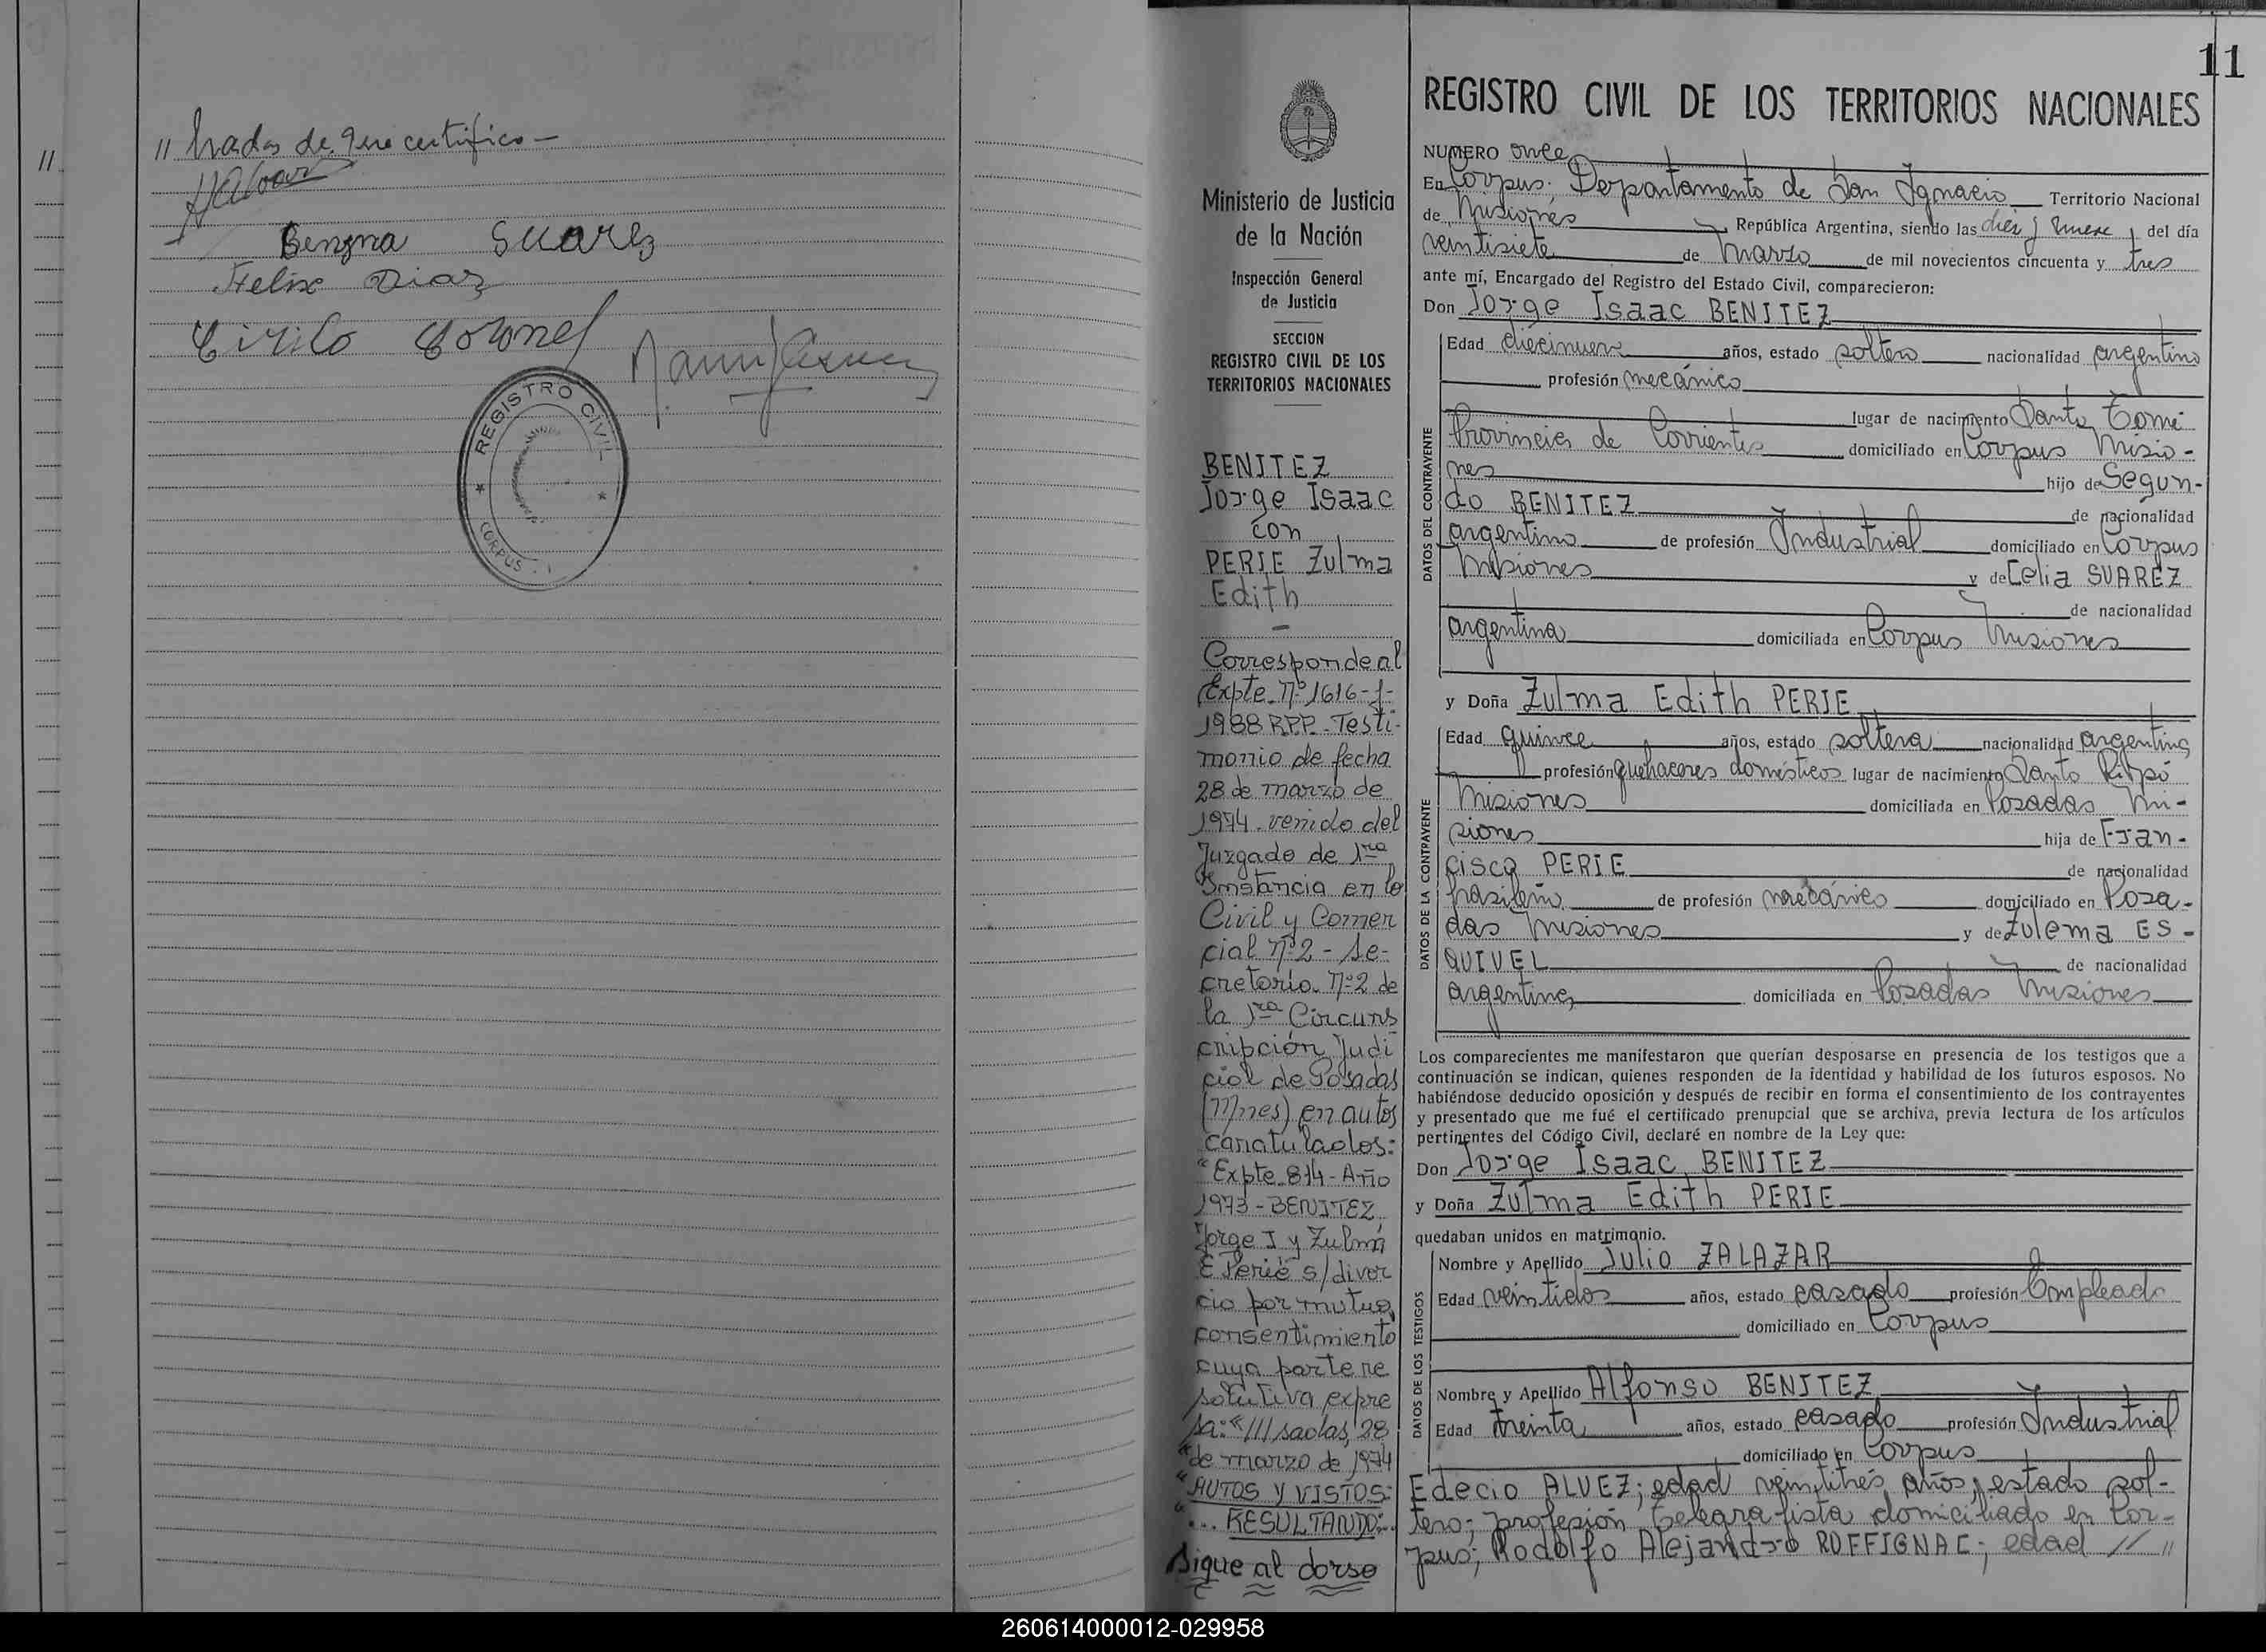 //
// trados de que certifico —
Benigna Suarez
Felix Diaz
Cirilo Coronel
REGISTRO CIVIL
CORPUS
11
Ministerio de Justicia
de la Nación
Inspección General
de Justicia
SECCION
REGISTRO CIVIL DE LOS
TERRITORIOS NACIONALES
BENITEZ
Jorge Isaac
con
PERIE Zulma
Edith
—
Corresponde al
Expte. Nº 1616-f-
1988 RPP - Testi-
monio de fecha
28 de marzo de
1974 venido del
Juzgado de 1ra
Instancia en lo
Civil y Comer
cial Nº 2 - Se-
cretaría Nº 2 de
la 1ra Circuns
cripción Judi
cial de Posadas
(Mnes) en autos
caratulados:
"Expte 814 - Año
1973 - BENITEZ
Jorge I y Zulma
E Perie s/divor
cio por mutuo
consentimiento
cuya parte re
solutiva expre
sa: "///sadas, 28
"de marzo de 1974
"AUTOS Y VISTOS:
"... RESULTANDO:..
Sigue al dorso
REGISTRO CIVIL DE LOS TERRITORIOS NACIONALES
NUMERO once
En Corpus. Departamento de San Ignacio Territorio Nacional
de Misiones República Argentina, siendo las diez y nueve del día
veintisiete de Marzo de mil novecientos cincuenta y tres
ante mí, Encargado del Registro del Estado Civil, comparecieron:
Don Jorge Isaac BENITEZ
DATOS DEL CONTRAYENTE
Edad diecinueve años, estado soltero nacionalidad argentino
profesión mecánico
lugar de nacimiento Santo Tomé
Provincia de Corrientes domiciliado en Corpus Misio-
nes hijo de Segun-
do BENITEZ de nacionalidad
argentino de profesión Industrial domiciliado en Corpus
Misiones y de Celia SUAREZ
de nacionalidad
argentina domiciliada en Corpus Misiones
y Doña Zulma Edith PERIE
DATOS DE LA CONTRAYENTE
Edad quince años, estado soltera nacionalidad argentina
profesión quehaceres domésticos lugar de nacimiento Santo Pipó
Misiones domiciliada en Posadas Mi-
siones hija de Fran-
cisco PERIE de nacionalidad
brasileño de profesión mecánico domiciliado en Posa-
das Misiones y de Zulema ES-
QUIVEL de nacionalidad
argentina domiciliada en Posadas Misiones
Los comparecientes me manifestaron que querían desposarse en presencia de los testigos que a
continuación se indican, quienes responden de la identidad y habilidad de los futuros esposos. No
habiéndose deducido oposición y después de recibir en forma el consentimiento de los contrayentes
y presentado que me fué el certificado prenupcial que se archiva, previa lectura de los artículos
pertinentes del Código Civil, declaré en nombre de la Ley que:
Don Jorge Isaac BENITEZ
y Doña Zulma Edith PERIE
quedaban unidos en matrimonio.
DATOS DE LOS TESTIGOS
Nombre y Apellido Julio ZALAZAR
Edad veintidos años, estado casado profesión Empleado
domiciliado en Corpus
Nombre y Apellido Alfonso BENITEZ
Edad treinta años, estado casado profesión Industrial
domiciliado en Corpus
Edecio ALVEZ; edad veintitrés años, estado sol-
tero; profesión telegrafista domiciliado en Cor-
pus; Rodolfo Alejandro ROFFIGNAC; edad // //
260614000012-029958